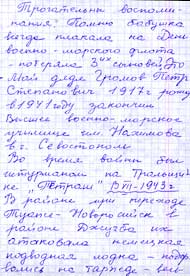 Трогательны воспоми-
нания! Помню бабушка
всегда плакала на День
военно-морского флота
- потеряла 3ых сыновей. Это
Мой дядя Громов Петр
Степанович 1917 г рожд
в 1941 году закончил
Высшее военно-морское
училище им. Нахимова
в г. Севастополь
Во время войны был
штурманом на Тральщи-
ке "Петраш" В III-1943 г.
В районе при переходе
Туапсе-Новоросийск в
районе Джубга их
атаковала немецкая
подводная лодка - подор-
вались на торпеде, весь